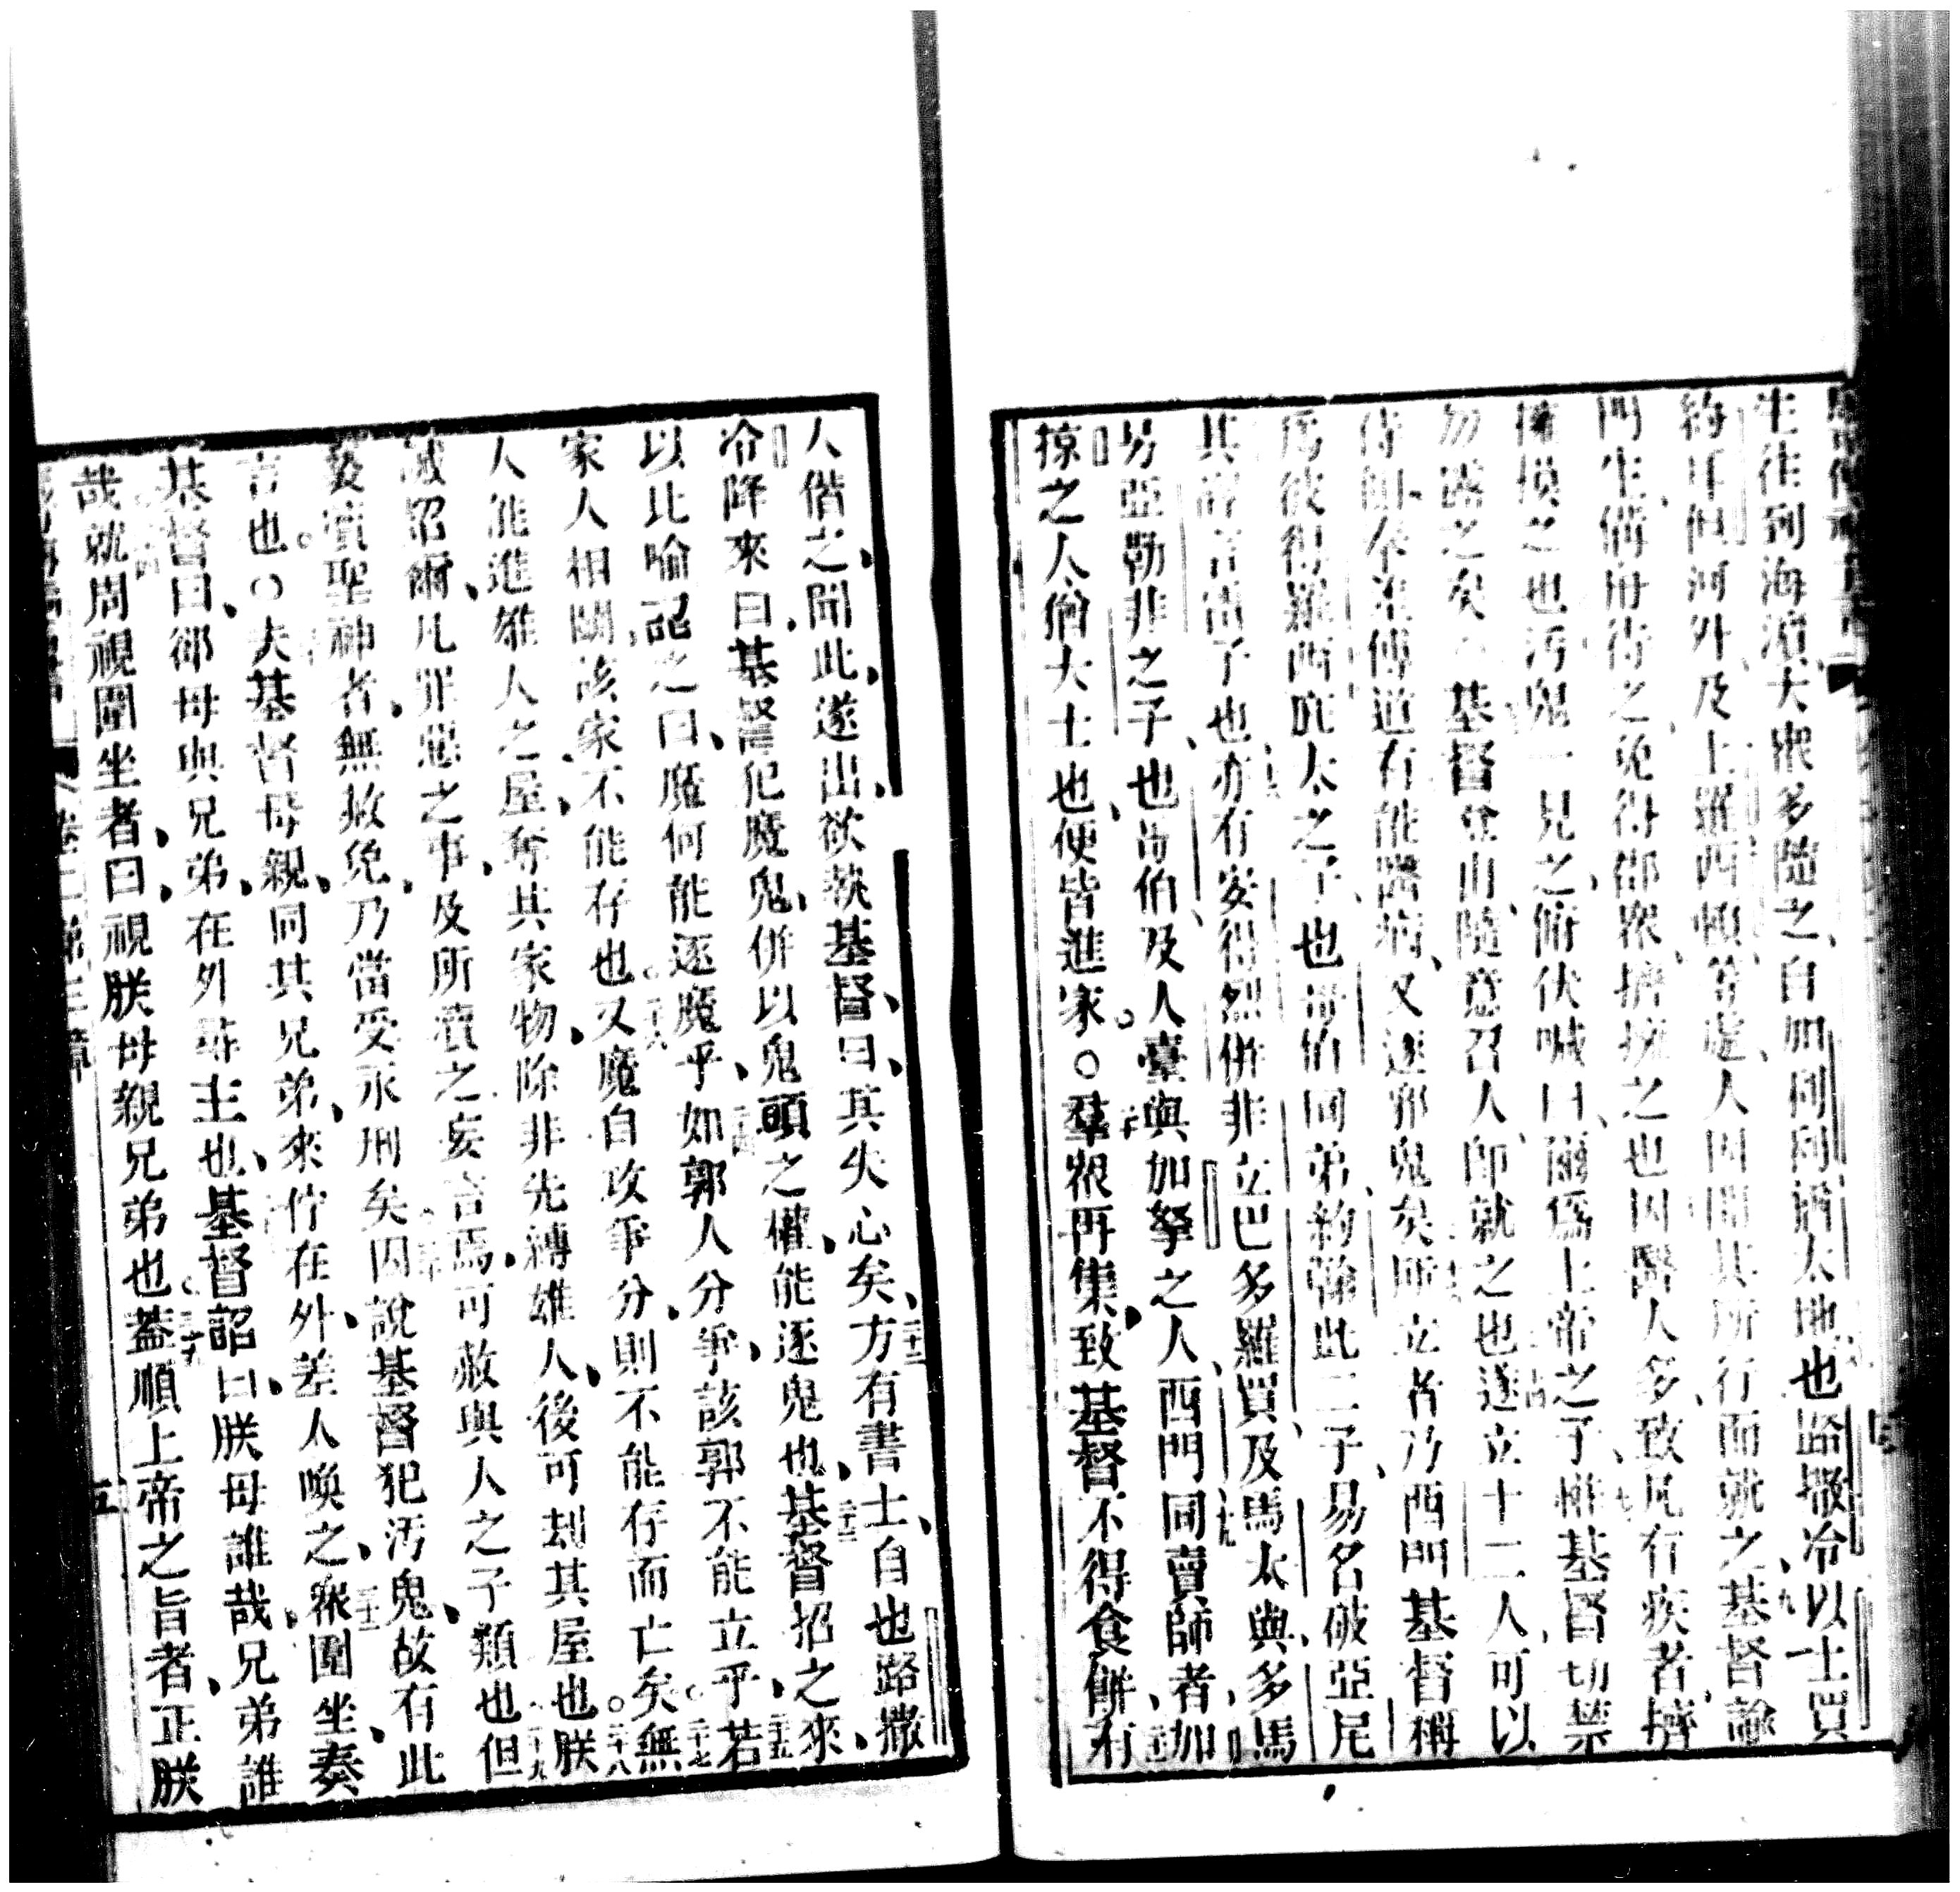 生往到海濱大眾多隨之自加利利猶太地也路撒冷以土買
約耳但河外及上羅西頓等處人因聞其所行而就之基督諭
門生備舟待之免得郤眾擠擁之也因醫人多致凡有疾者擠
擁摸之也污鬼一見之俯伏喊曰爾為上帝之子惟基督切禁
勿露之矣○基督登山隨意召人即就之也遂立十二人可以
侍側奉差傳道有能醫病又逐邪鬼矣所立者乃西門基督稱
為彼得羅西庇太之子也
同弟約翰此二子易名破亞尼
其譯言雷子也亦有安得烈併非立巴多羅買及馬太與多馬
另亞勒非之子也
及人臺與加拏之人西門同賣師者加
掠之人猶大士也便皆進家○二十羣眾再集致基督不得食併有
人偕之聞此遂出欲執基督曰其失心矣二十二方有書士自也路撒
冷降來曰基督犯魔鬼併以鬼頭之權能逐鬼也二十三基督招之來
以比喻詔之曰魔何能逐魔乎二十四如郭人分爭該郭不能立乎二十五若
家人相鬪該家不能存也二十六又魔自攻爭分則不能存而亡矣二十七無
人能進雄人之屋奪其家物除非先縛雄人後可刦其屋也二十八朕
誠詔爾凡罪惡之事及所瀆之妄言焉可赦與人之子類也二十九但
妄瀆聖神者無赦免乃當受永刑矣三十因說基督犯汚鬼故有此
言也○夫基督母親同其兄弟來佇在外差人喚之三十二眾圍坐奏
基督曰郤母與兄弟在外尋主也基督詔曰朕母誰哉兄弟誰
哉就周視圍坐者曰視朕母親兄弟也三十五蓋順上帝之旨者正朕
卷二第三章
五